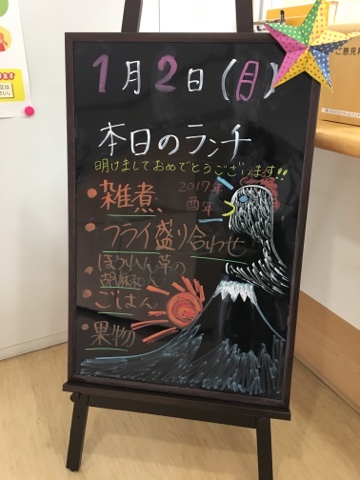 1月2日(月)
本日のランチ
明けましておめでとうございます!!
・雑煮
2017年
酉年
・フライ盛り合わせ
ほうれん草の
胡麻和え
・ごはん
・果物
ご意見